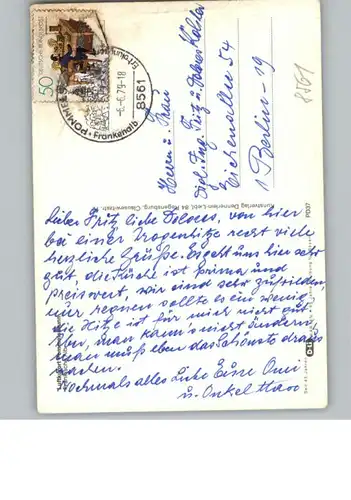 50
DEUTSCHE BUNDESPOST
8561
-6.-6.79-18
POMMELS
Frankenalb
8561
Herrn u. Frau
Dipl. Ing. Fritz u. Dolores Köhler
Eichenallee 54
1 Berlin - 19
Kunstverlag Dennerlein-Liebl, 84 Regensburg, Clausewitzstr.
PD37
Lieber Fritz, liebe Dolores, von hier
bei einer Tropenhitze recht viele
herzliche Grüße. Es geht uns hier sehr
gut, die Küche ist prima und
preiswert, wir sind sehr zufrieden,
nur regnen sollte es ein wenig,
die Hitze ist für mich nicht gut
aber, man kann's nicht ändern
man muß eben das Schönste draus
machen.
Nochmals alles Liebe Eure Omi
u. Onkel Max